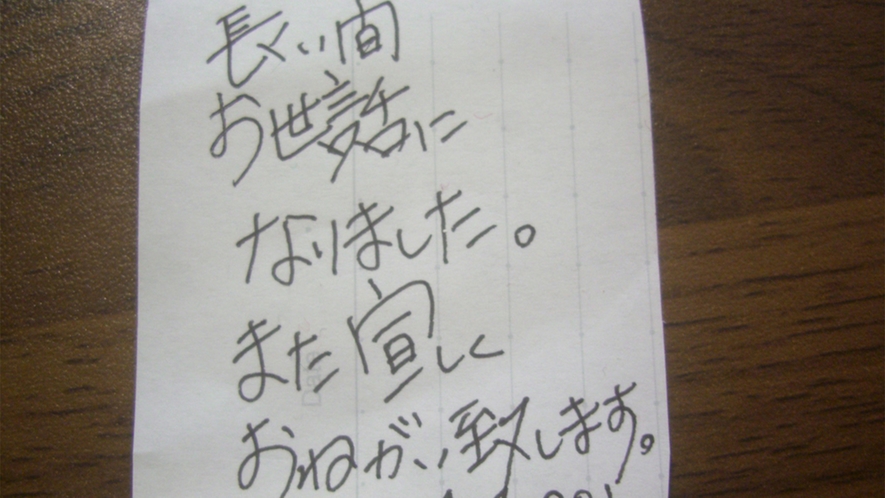 長い間
お世話に
なりました。
また宣しく
おねがい致します。